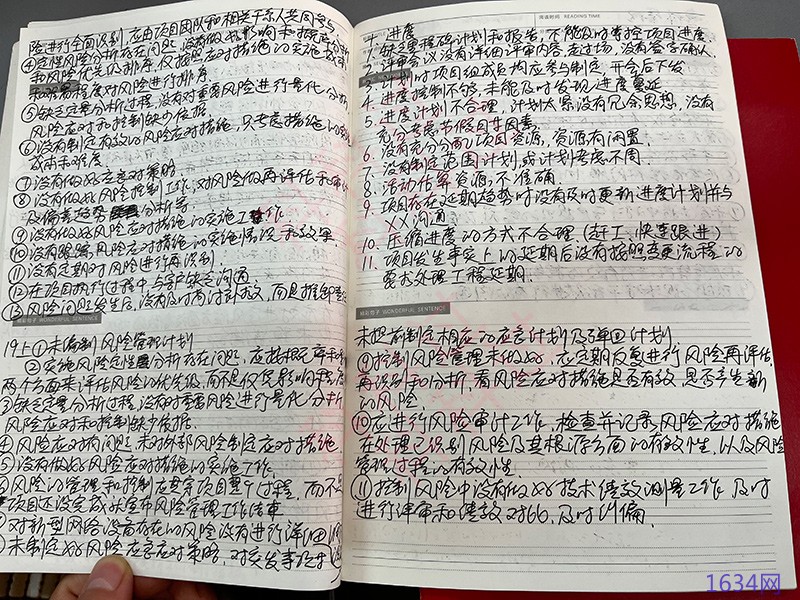 险进行全面识别,应由项目团队和相关干系人共同参与
④定性风险分析存在问题,没有做好影响和概率分析
和风险优先级排序,仅按照应对措施的实施成本
和难易程度对风险进行排序
⑤缺乏定量分析过程,没有对重要风险进行量化分析
风险应对和控制缺少依据
⑥没有制定有效的风险应对措施,只考虑措施的实施
成本和难度
⑦没有做好应急对策略
⑧没有做好风险控制工作,对风险做再评估和审计
及偏差趋势分析等
⑨没有做好风险应对措施的实施工作
⑩没有跟踪风险应对措施的实施情况和效果
⑪没有定期对风险进行再识别
⑫在项目执行过程中与客户缺乏沟通
⑬风险问题发生后,没有及时商讨补救,而是推卸责任
精彩句子 WONDERFUL SENTENCE
19上①未编制风险管理计划
②实施风险定性分析存在问题,应按概率和
两个方面来评估风险的优先级,而不是仅凭影响程度
③缺乏定量分析过程,没有对重要风险进行量化分析
风险应对和控制缺少依据
④风险应对有问题,未对外部风险制定应对措施
⑤没有做好风险应对措施的实施工作
风险的管理和控制应贯穿项目整个过程,而不是
项目还没完成就宣布风险管理工作结束
对新型网络设备存在的风险没有进行详细
未制定好风险应急应对策略,对突发事件
阅读时间 READING TIME
1. 进度
1. 缺乏里程碑计划和报告,不能及时掌控项目进度
2. 评审会议没有详细评审内容,走过场,没有签字确认
3. 计划时项目组成员均应参与制定,开会后下发
4. 进度控制不够,未能及时发现进度蔓延
5. 进度计划不合理,计划太紧没有冗余思想,没有
充分考虑节假日等因素
6. 没有充分分配项目资源,资源有闲置
7. 没有制定范围计划,或计划考虑不周
8. 活动估算资源,不准确
9. 项目存在延期趋势时没有及时更新进度计划并与
XX沟通
10. 压缩进度的方式不合理(赶工、快速跟进)
11. 项目发生事实上的延期后没有按照变更流程的
要求处理工程延期.
精彩句子 WONDERFUL SENTENCE
未提前制定相应的应急计划及弹回计划
⑨控制风险管理未做好,应定期反复进行风险再评估,
再识别和分析,看风险应对措施是否有效,是否产生新
的风险.
⑩应进行风险审计工作,检查并记录风险应对措施
在处理已识别风险及其根源方面的有效性,以及风险
管理过程的有效性.
⑪控制风险中没有做好技术绩效测量工作,及时
进行评审和绩效对比,及时纠偏.
1634网